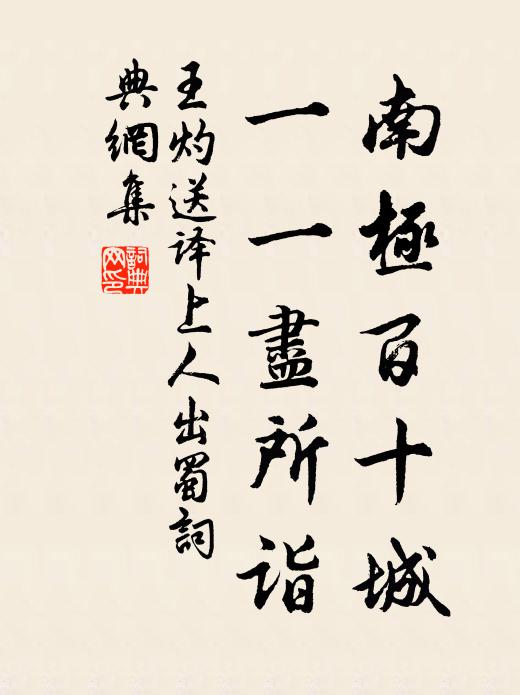 南極百十城
一一盡所詣
王灼送译上人出蜀詞
典網集
詞典網印